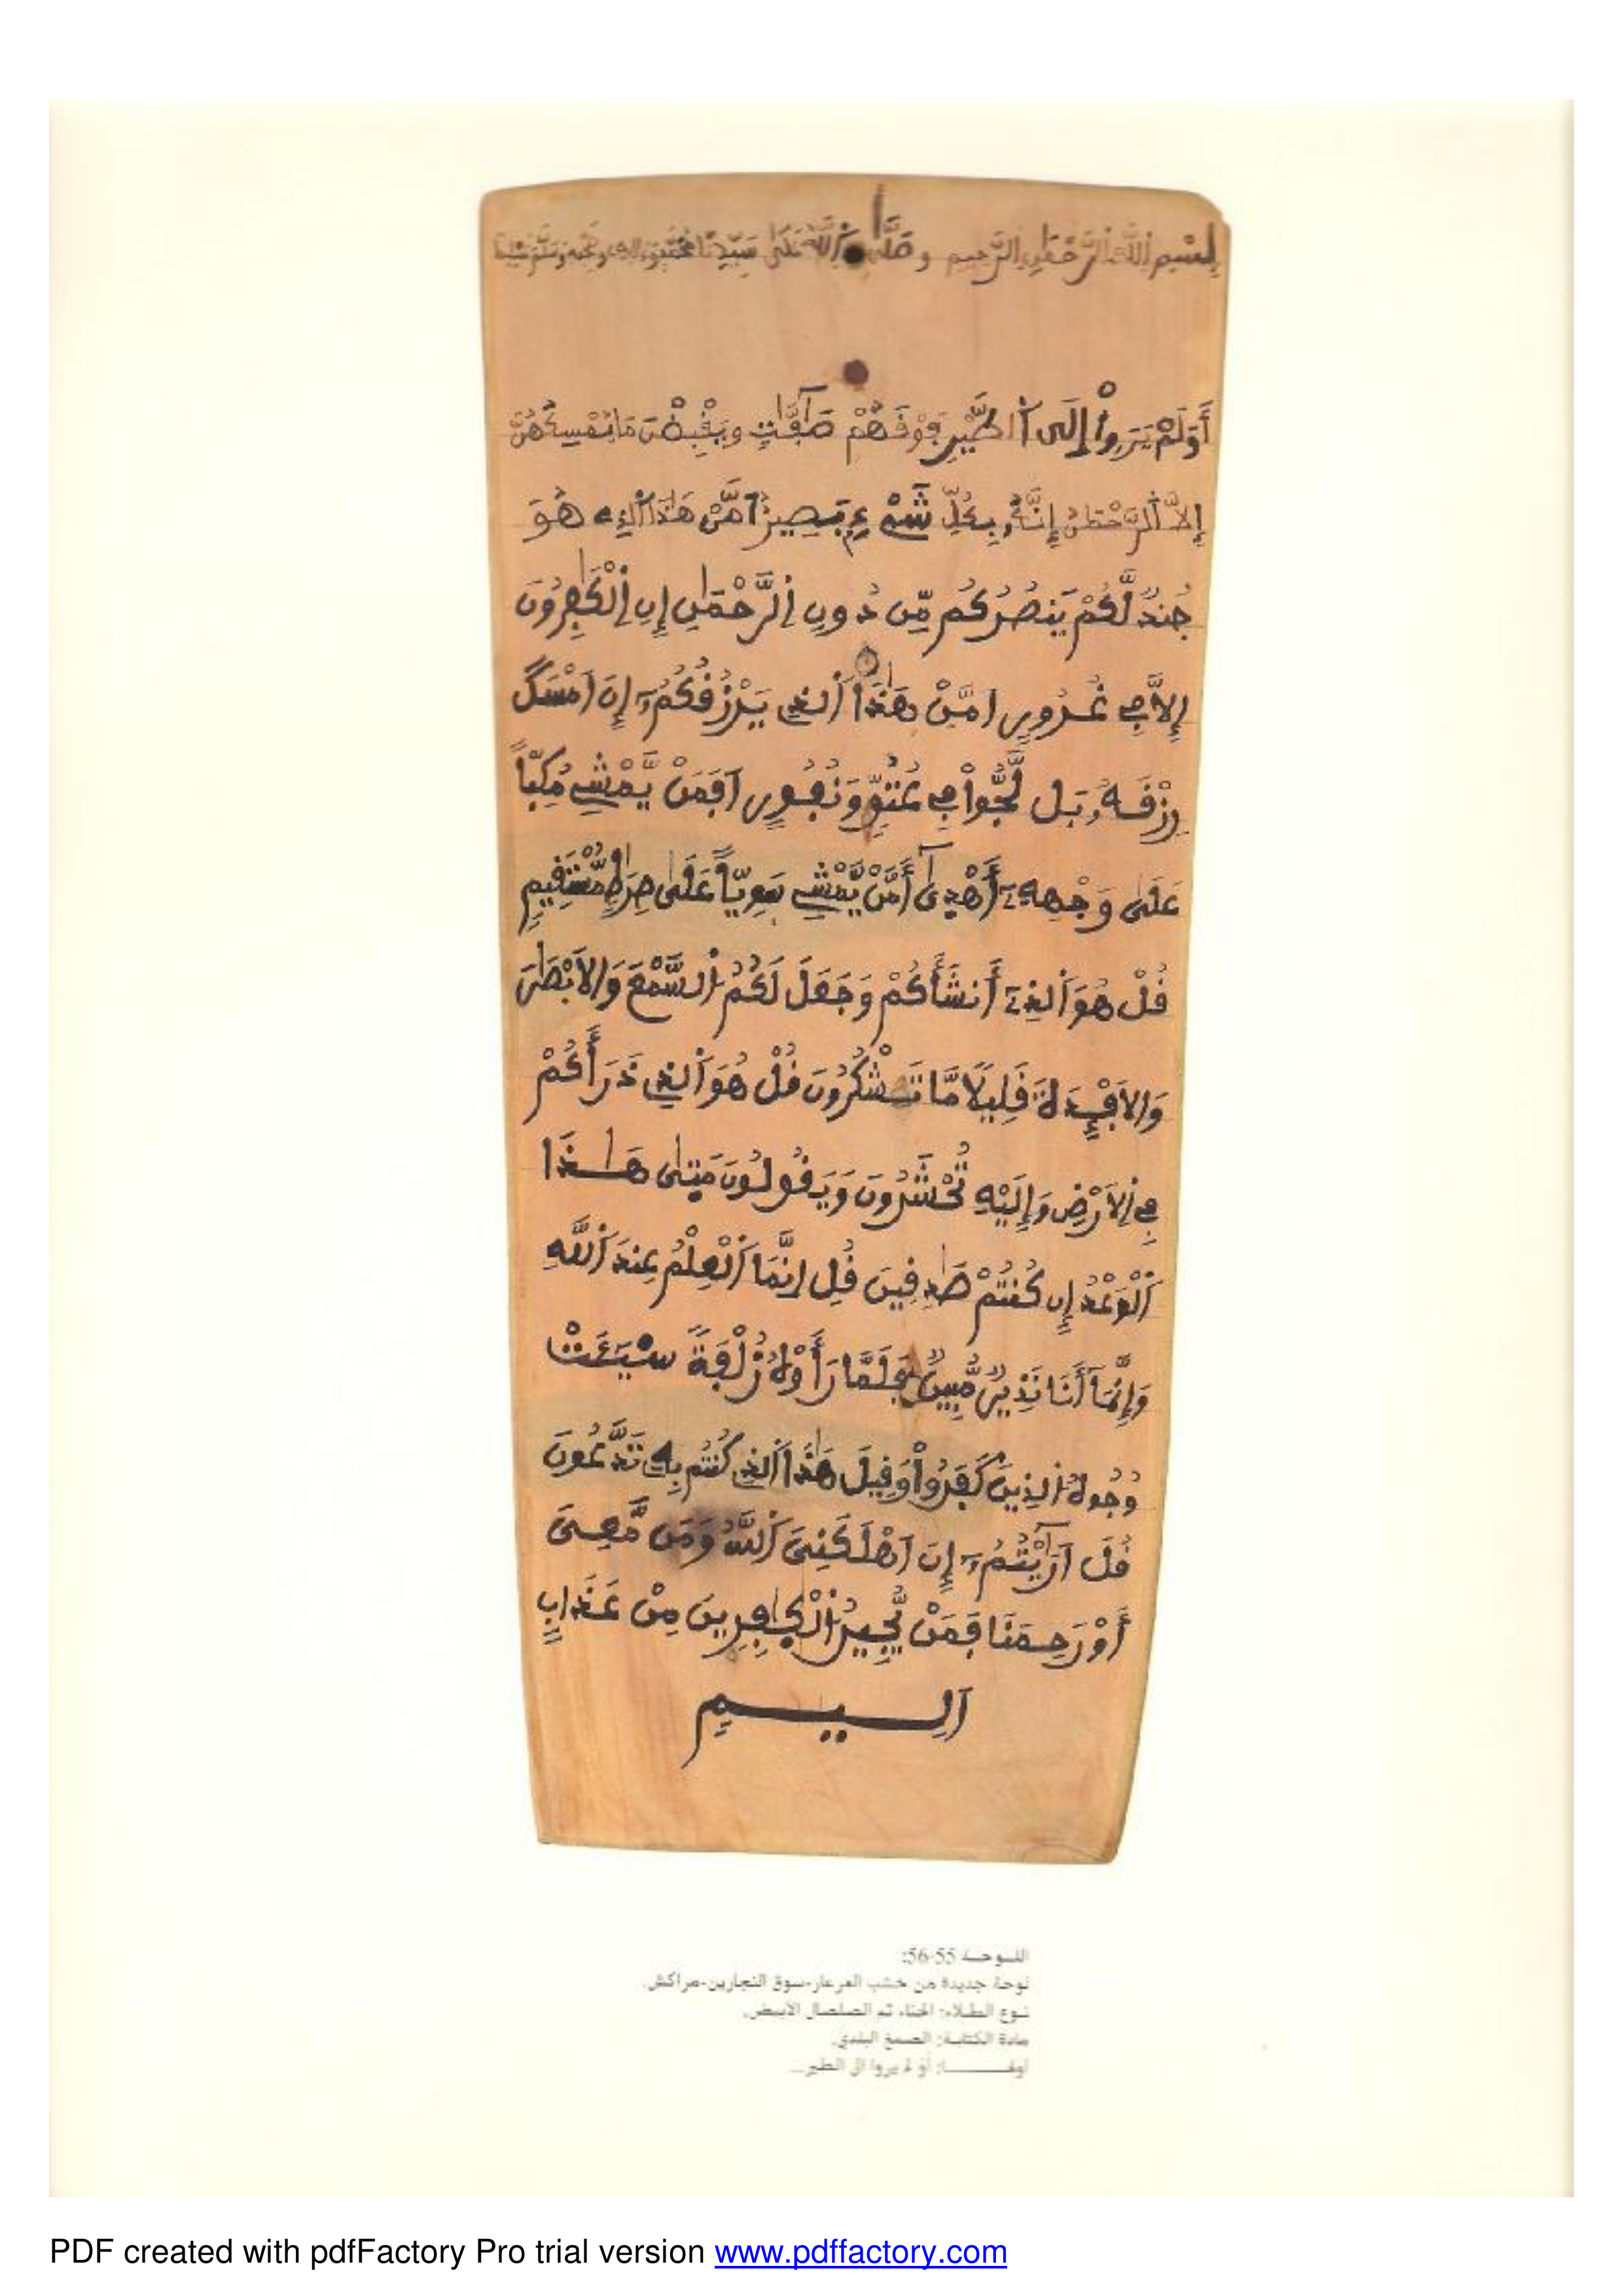 بسم الله الرحمن الرحيم وصلى الله على سيدنا محمد وءاله وصحبه وسلم تسليما
أَوَلَمْ يَرَوِاْ إِلَى اَ۬لطَّيْرِ فَوْقَهُمْ صَٰٓفَّٰتٖ وَيَقْبِضْنَ مَا يُمْسِكُهُنَّ
إِلَّا اَ۬لرَّحْمَٰنُ إِنَّهُۥ بِكُلِّ شَےْءِۢ بَصِيرٌ اَمَّنْ هَٰذَا اَ۬لذِے هُوَ
جُندٞ لَّكُمْ يَنصُرُكُم مِّن دُونِ اِ۬لرَّحْمَٰنِ إِنِ اِ۬لْكَٰفِرُونَ
إِلَّا فِے غُرُورٍ اَمَّنْ هَٰذَا اَ۬لذِے يَرْزُقُكُمُۥٓ إِنَ اَمْسَكَ
رِزْقَهُۥ بَل لَّجُّواْ فِے عُتُوّٖ وَنُفُورٍ اَفَمَنْ يَّمْشِے مُكِبّاً
عَلَىٰ وَجْهِهِۦٓ أَهْدِىٰٓ أَمَّنْ يَّمْشِے سَوِيّاً عَلَىٰ صِرَٰطٖ مُّسْتَقِيمٖ
قُلْ هُوَ اَ۬لذِےٓ أَنشَأَكُمْ وَجَعَلَ لَكُمُ اُ۬لسَّمْعَ وَالَابْصَٰرَ
وَالَافْـِٕدَةَ قَلِيلًا مَّا تَشْكُرُونَ قُلْ هُوَ اَ۬لذِے ذَرَأَكُمْ
فِے اِ۬لَارْضِ وَإِلَيْهِ تُحْشَرُونَ وَيَقُولُونَ مَتَىٰ هَٰذَا
اَ۬لْوَعْدُ إِن كُنتُمْ صَٰدِقِينَ قُلِ اِنَّمَا اَ۬لْعِلْمُ عِندَ اَ۬للَّهِ
وَإِنَّمَآ أَنَا نَذِيرٞ مُّبِينٞ فَلَمَّا رَأَوْهُ زُلْفَةً سِيٓـَٔتْ
وُجُوهُ اُ۬لذِينَ كَفَرُواْ وَقِيلَ هَٰذَا اَ۬لذِے كُنتُم بِهِۦ تَدَّعُونَ
قُلَ اَرَٰٓيْتُمُۥٓ إِنَ اَهْلَكَنِيَ اَ۬للَّهُ وَمَن مَّعِيَ
أَوْ رَحِمَنَا فَمَنْ يُّجِيرُ اُ۬لْكَٰفِرِينَ مِنْ عَذَابٍ
اَلِيمٖ
اللوحة 55-56:
لوحة جديدة من خشب العرعار-سوق النجارين-مراكش.
نوع الطلاء: الحناء ثم الصلصال الأبيض.
مادة الكتابة: الصمغ البلدي.
أولها: أو لم يروا إلى الطير...
PDF created with pdfFactory Pro trial version www.pdffactory.com